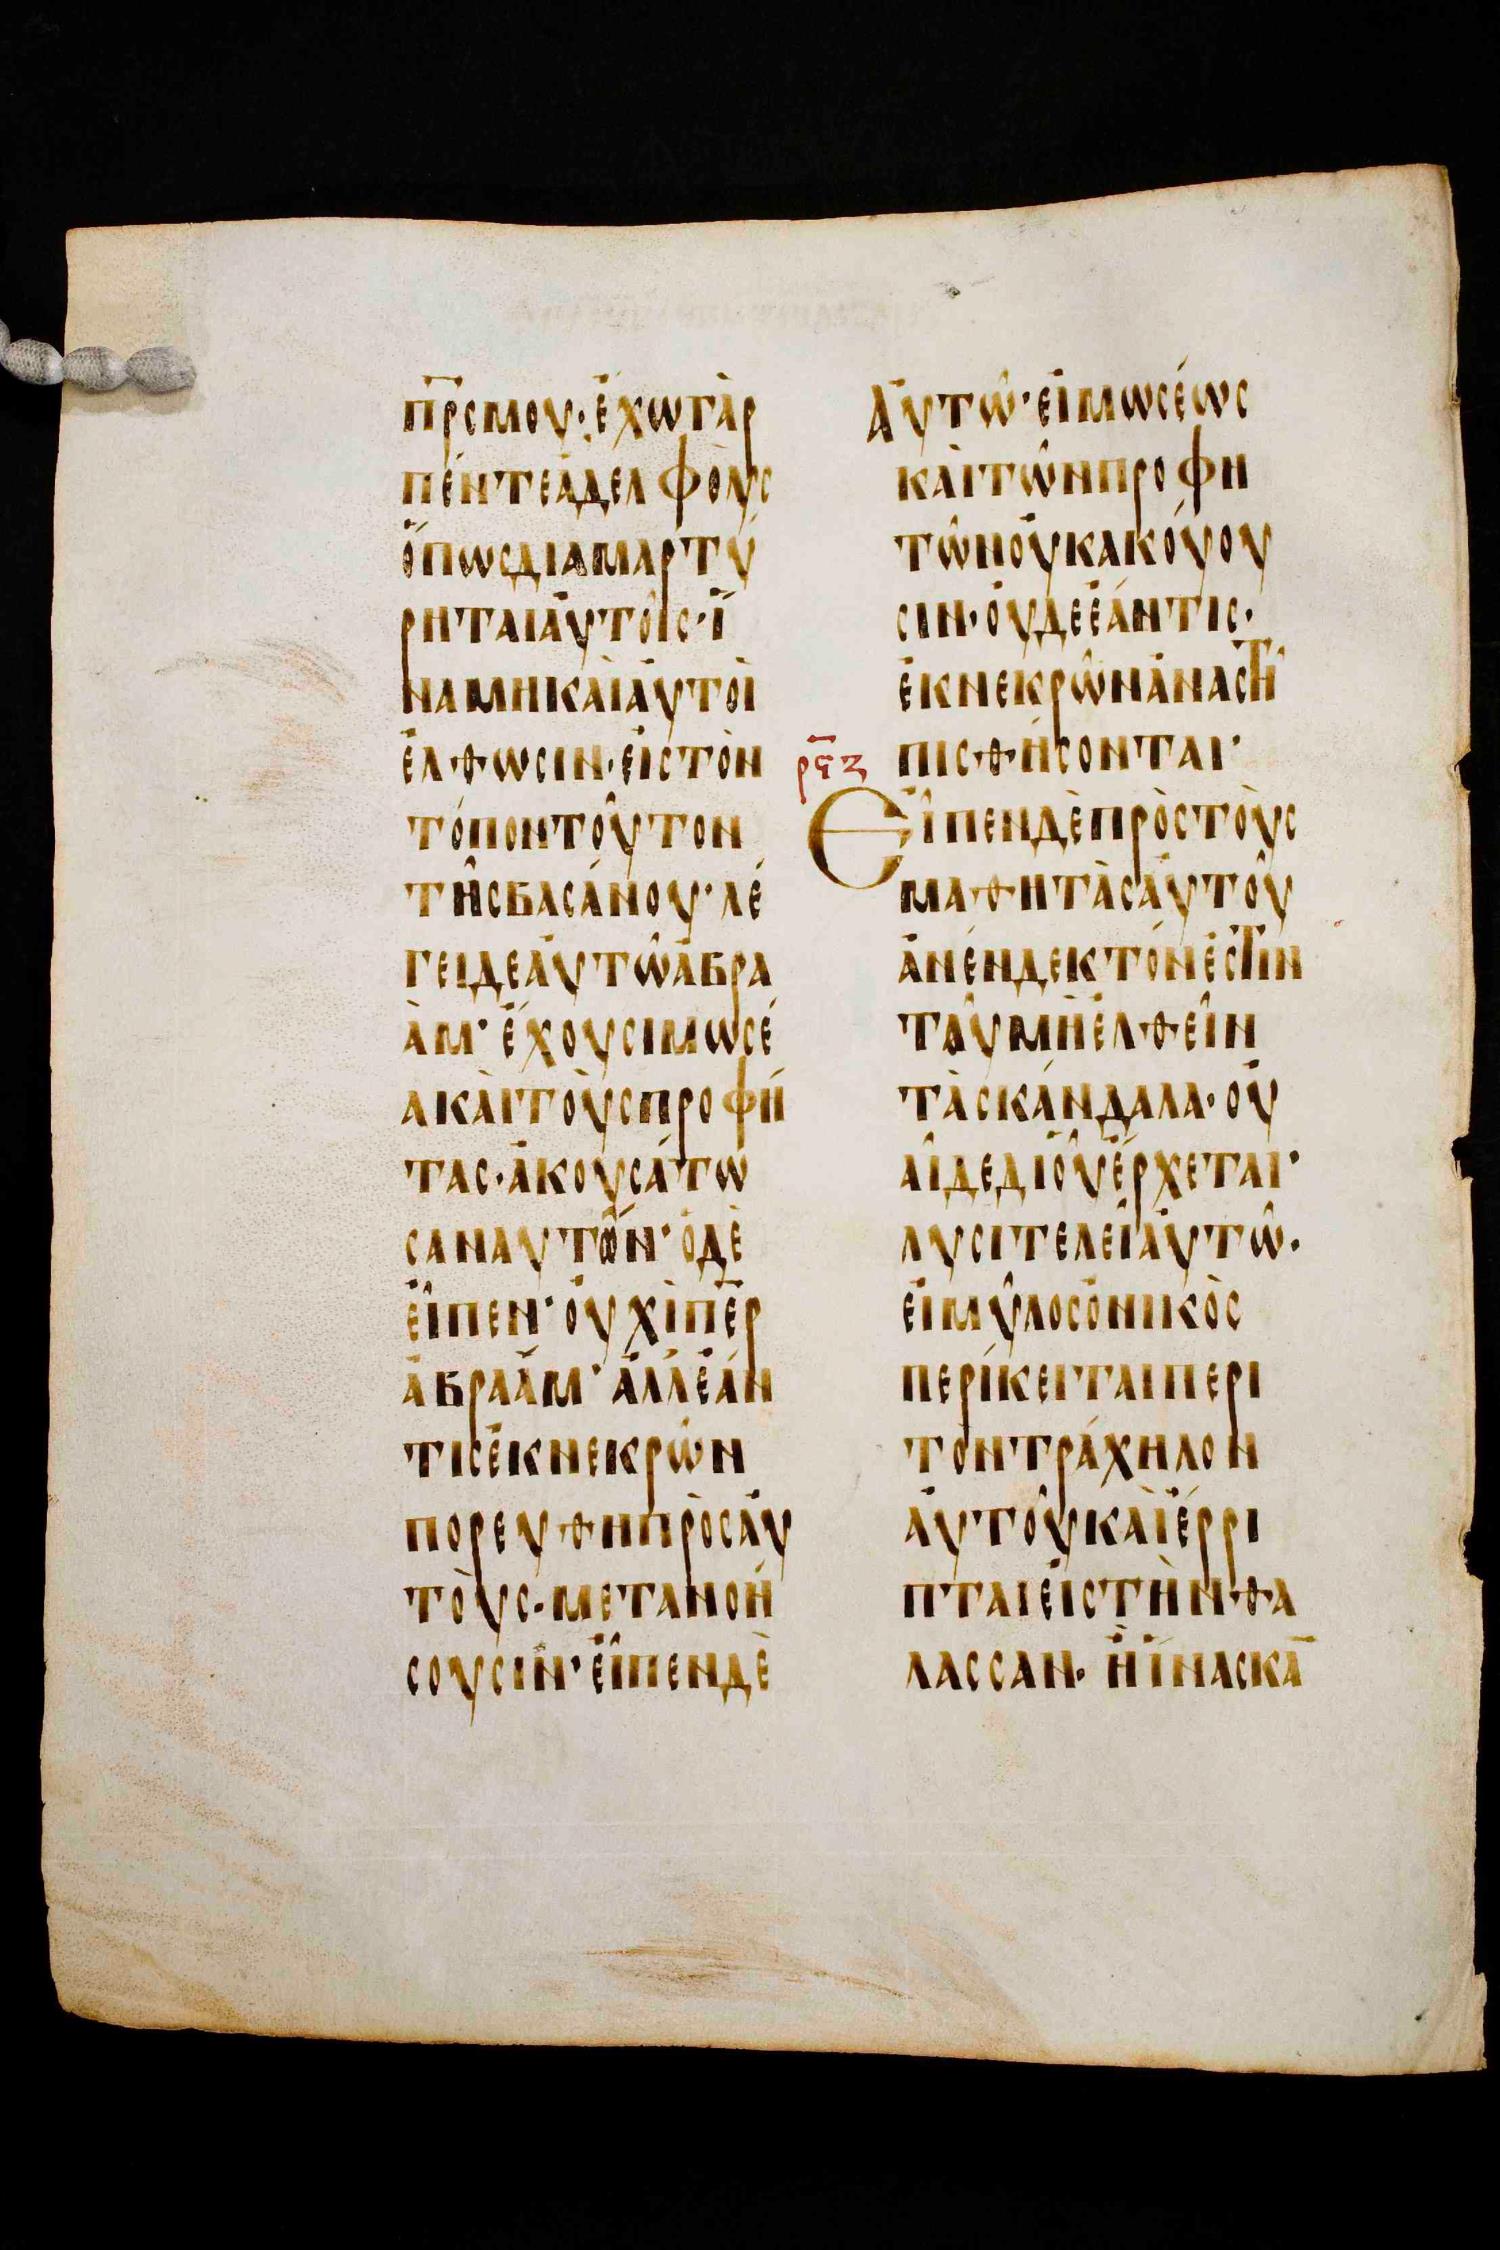 π̅ρ̅ς̅μου· ἔχωγὰρ
πέντεἀδελφοὺς
ὅπωςδιαμαρτύ
ρηταιἀυτοῖς· ἵ
ναμηκαὶἀυτοὶ
ἔλθωσιν· ἐιςτὸν
τόποντοῦτον
τῆςβασάνου· λέ
γειδεἀυτῶἀβρα
ὰμ· ἔχουσιμωσέ
ακαὶτοὺςπροφή
τας· ἀκουσάτω
σαναυτῶν· ὁδὲ
ἐῖπεν· ὀυχὶπ̅ε̅ρ
ἀβραὰμ· ἀλλἐάν
τιςἐκνεκρῶν
πορευθηπρὸςἀυ
τοὺς· μετανοή
σουσιν· ἐῖπενδὲ
Ἀυτῶ· ἐιμωσέως
καὶτῶνπροφη
τῶνὀυκακούου
σιν· ὀυδεἐάντις·
ἐκνεκρῶνἀναστῆ
πισθήσονται·
ρϟζ
Ἐῖπενδὲπρὸςτοὺς
μαθητὰςἀυτοῦ
ἀνένδεκτόνἐστιν
τοῦμὴἐλθεῖν
τὰσκάνδαλα· ὀυ
αῖδεδιοὗἔρχεται·
λυσιτελεῖἀυτῶ·
ἐιμῦλοςὀνικὸς
περίκειταιπερι
τοντράχηλον
ἀυτοῦκαὶἔρρι
πταιἐιςτὴνθα
λασσαν· ἢἵνασκα̅